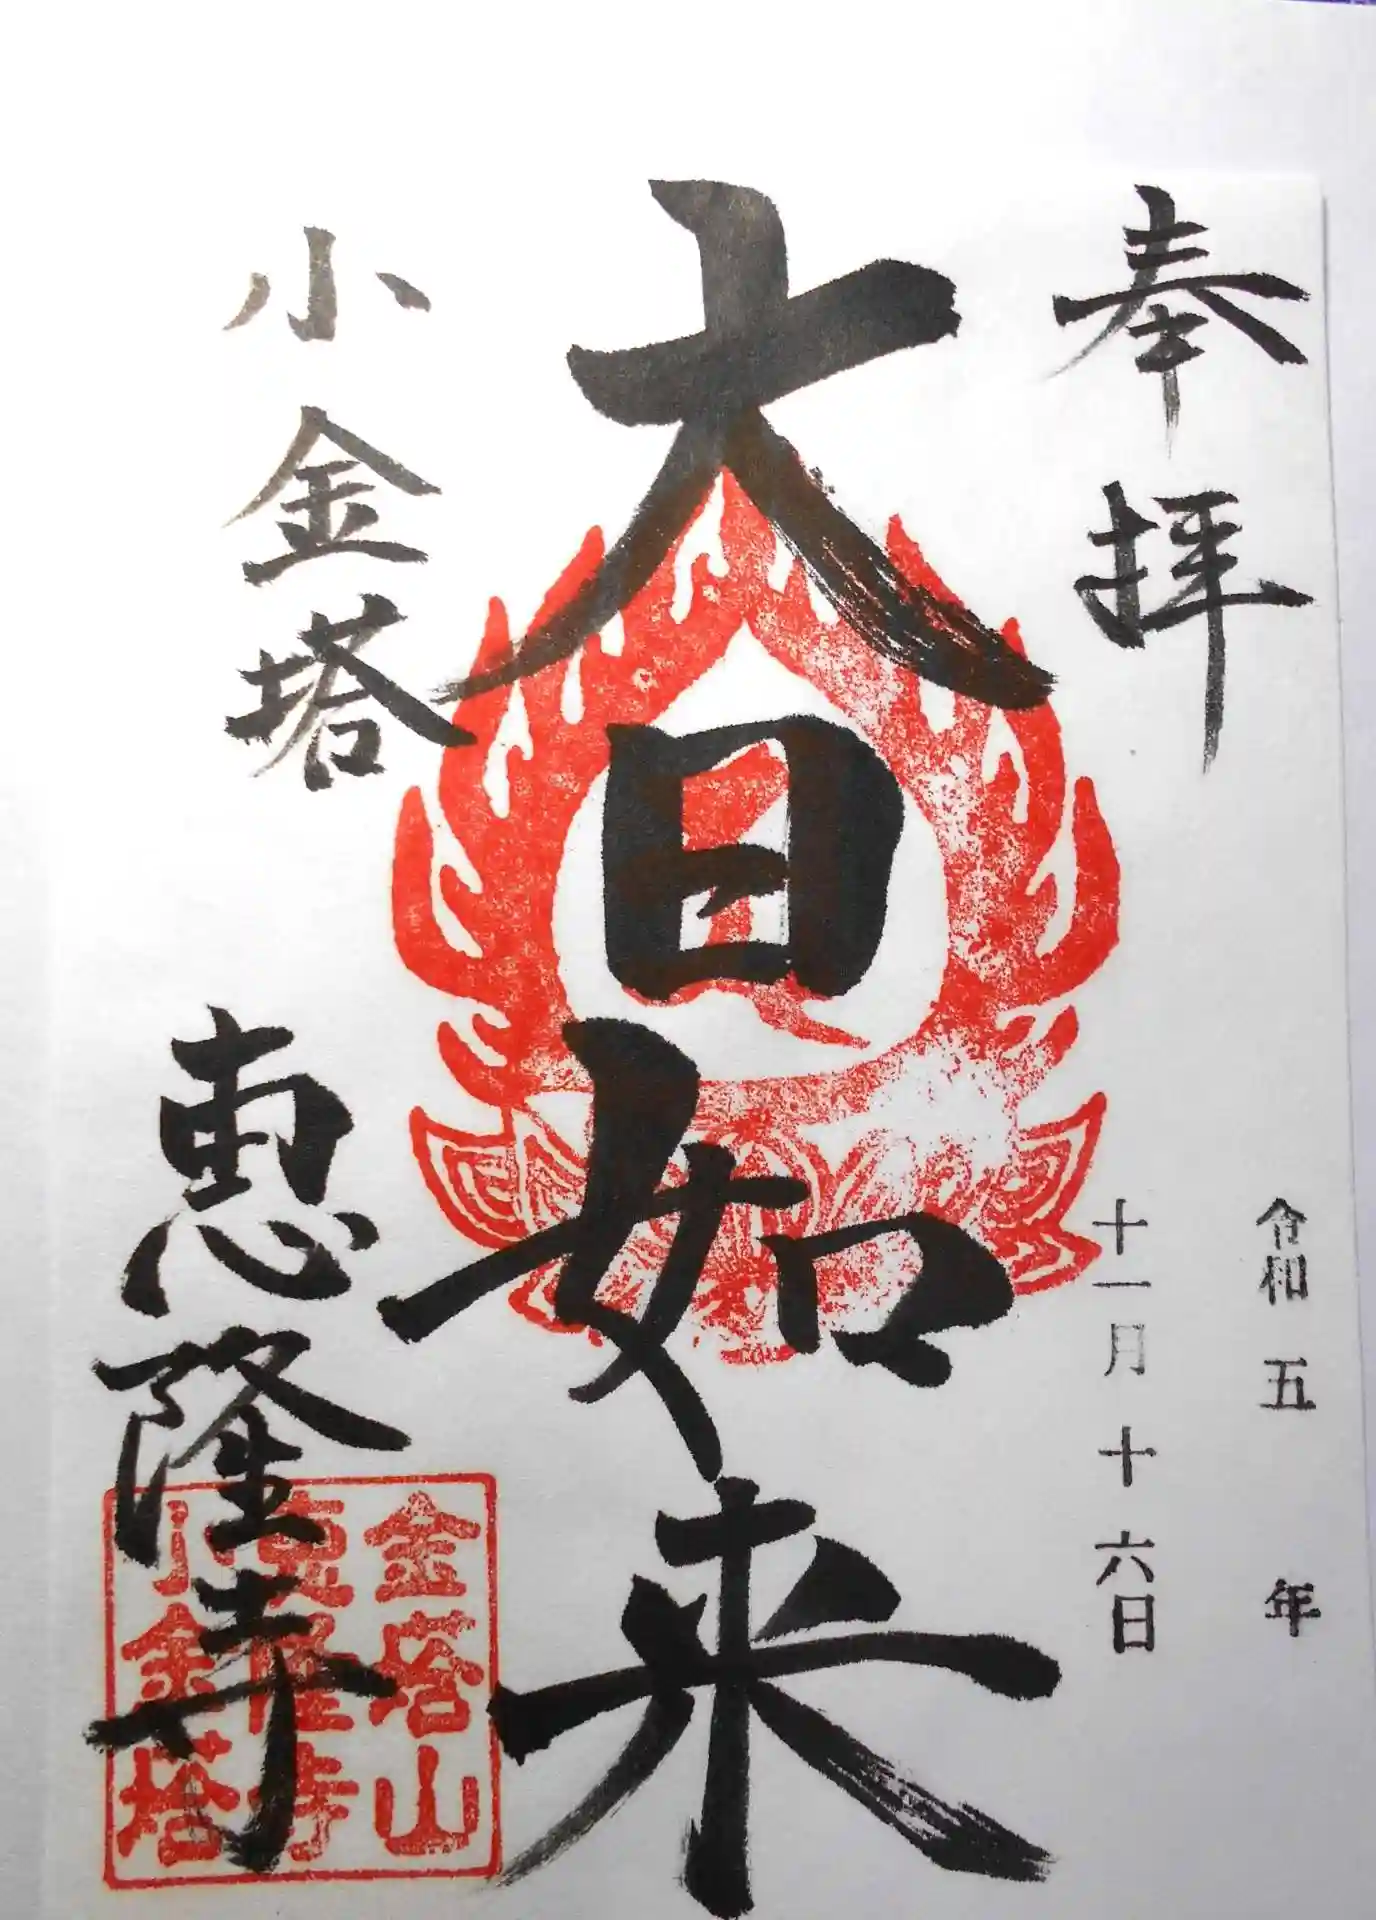 奉拝
令和五年
十一月十六日
大日如来
小金塔
恵隆寺
金塔山
恵隆寺
小金塔